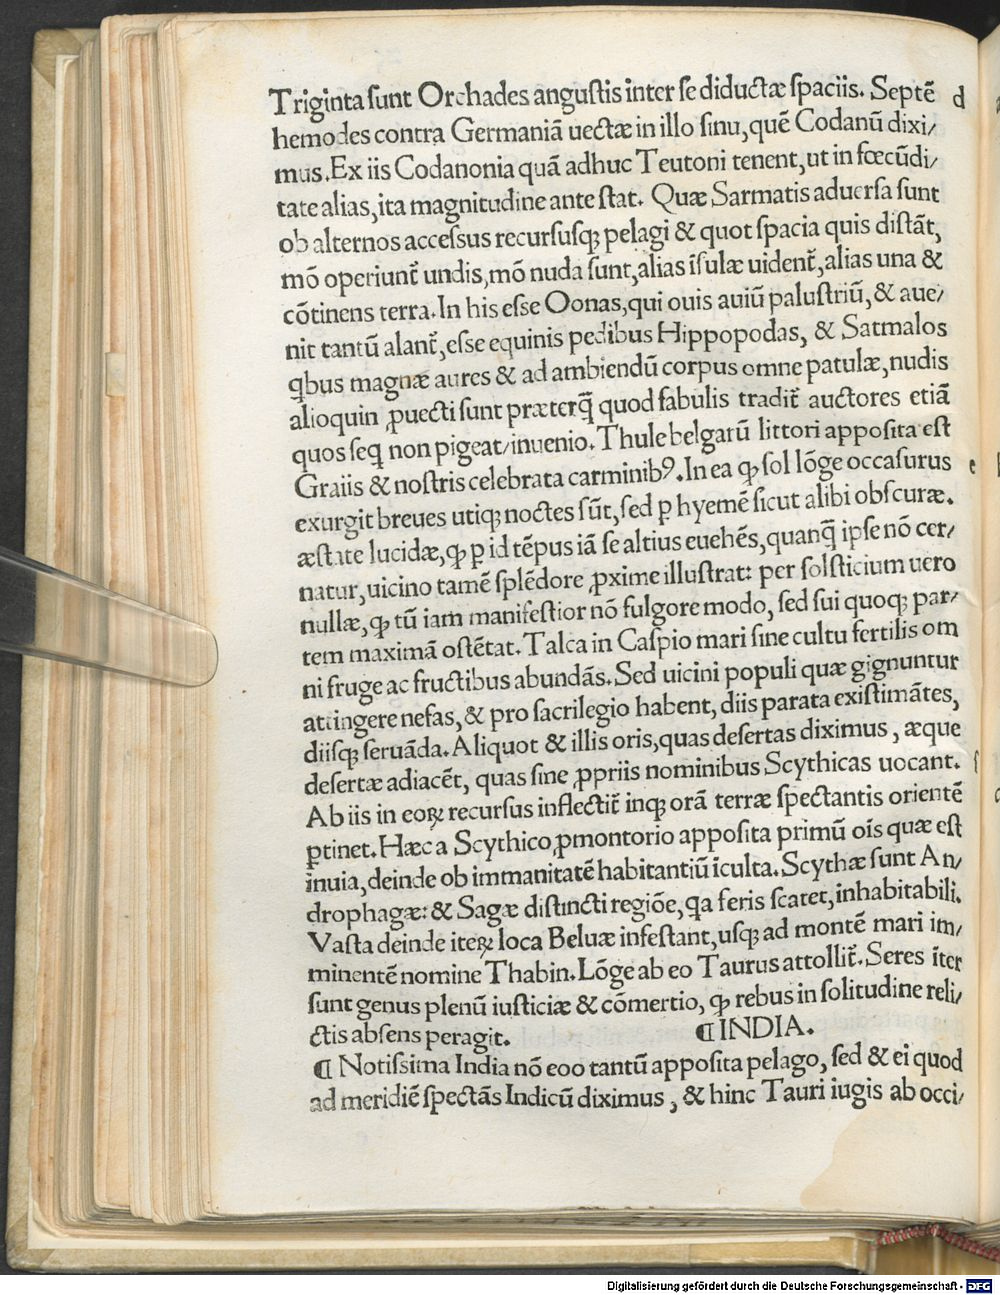 Triginta ſunt Orchades anguſtis inter ſe diductæ ſpaciis. Septē d
hemodes contra Germaniā uectæ in illo ſinu, quē Codanū dixi/
mus. Ex iis Codanonia quā adhuc Teutoni tenent, ut in fœcūdi/
tate alias, ita magnitudine ante ſtat. Quæ Sarmatis aduerſa ſunt
ob alternos acceſsus recurſuſqꝫ pelagi & quot ſpacia quis diſtāt,
mō operiunt̄ undis, mō nuda ſunt, alias īſulæ uident̄, alias una &
cōtinens terra. In his eſse Oonas, qui ouis auiū paluſtriū, & aue/
nit tantū alant̄, eſse equinis pedibus Hippopodas, & Satmalos
q̇bus magnæ aures & ad ambiendū corpus omne patulæ, nudis
alioquin ꝓuecti ſunt præterq̄ quod fabulis tradit̄ auctores etiā
quos ſeq̇ non pigeat/inuenio. Thule belgarū littori appoſita eſt
Graiis & noſtris celebrata carminibꝰ. In ea ꝙ ſol lōge occaſurus e
exurgit breues utiqꝫ noctes ſūt, ſed ꝑ hyemē ſicut alibi obſcuræ.
æſtate lucidæ, ꝙ ꝑ id tēpus iā ſe altius euehēs, quanq̄ ipſe nō cer/
natur, uicino tamē ſplēdore ꝓxime illuſtrat: per ſolſticium uero
nullæ, ꝙ tū iam manifeſtior nō fulgore modo, ſed ſui quoqꝫ par/
tem maximā oſtētat. Talca in Caſpio mari ſine cultu fertilis om
ni fruge ac fructibus abundās. Sed uicini populi quæ gignuntur
attingere nefas, & pro ſacrilegio habent, diis parata exiſtimātes,
diiſqꝫ ſeruāda. Aliquot & illis oris, quas deſertas diximus, æque
deſertæ adiacēt, quas ſine ꝓpriis nominibus Scythicas uocant.
Ab iis in eoꝝ recurſus inflectit̄ inqꝫ orā terræ ſpectantis orientē
ꝑtinet. Hæc a Scythico ꝓmontorio appoſita primū oīs quæ eſt
inuia, deinde ob immanitatē habitantiū īculta. Scythæ ſunt An/
drophagæ: & Sagæ diſtincti regiōe, q̇a feris ſcatet, inhabitabili.
Vaſta deinde iteꝝ loca Beluæ infeſtant, uſqꝫ ad montē mari im/
minentē nomine Thabin. Lōge ab eo Taurus attollit̄. Seres īter
ſunt genus plenū iuſticiæ & cōmertio, ꝙ rebus in ſolitudine reli/
ctis abſens peragit. ¶ INDIA.
¶ Notiſsima India nō eoo tantū appoſita pelago, ſed & ei quod
ad meridiē ſpectās Indicū diximus, & hinc Tauri iugis ab occi/
Digitalisierung gefördert durch die Deutsche Forschungsgemeinschaft - DFG